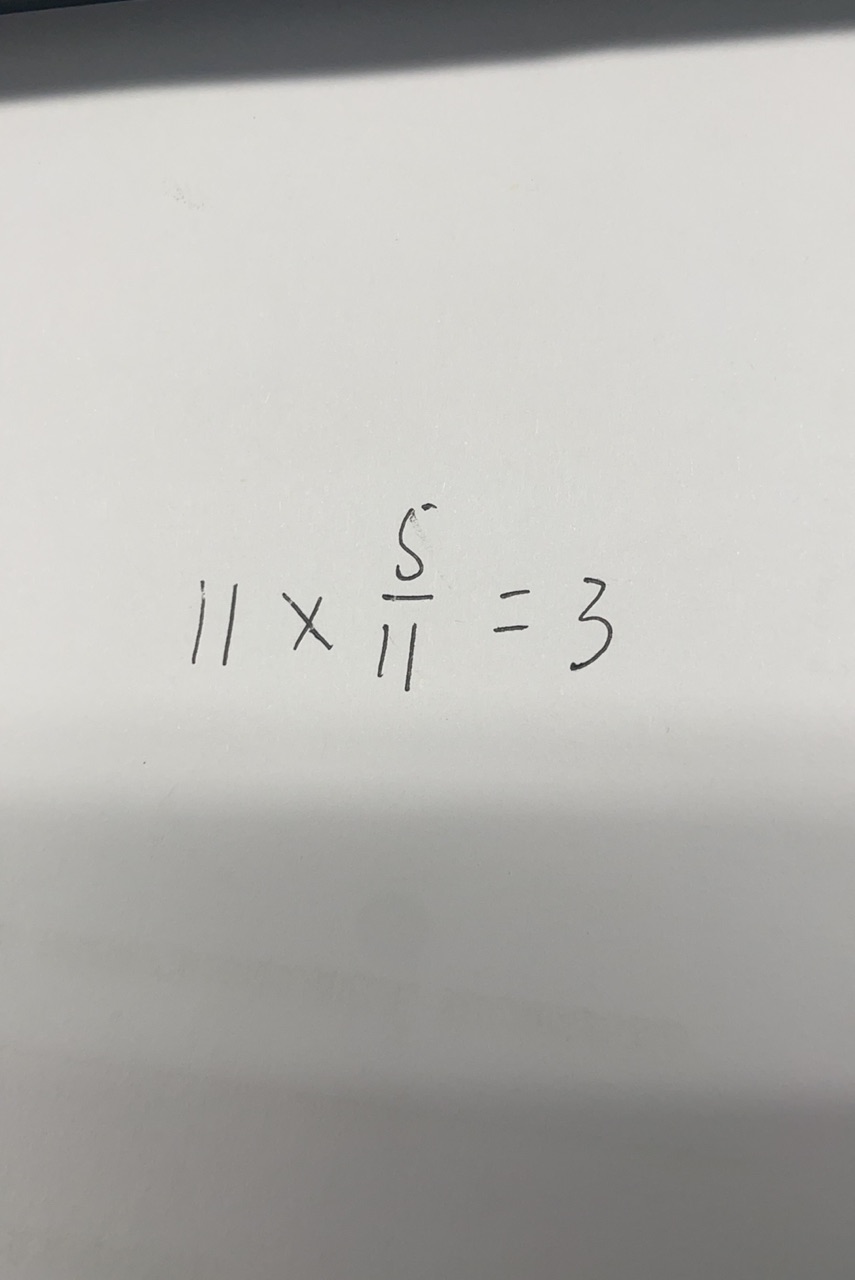 11 × 5/11 = 3